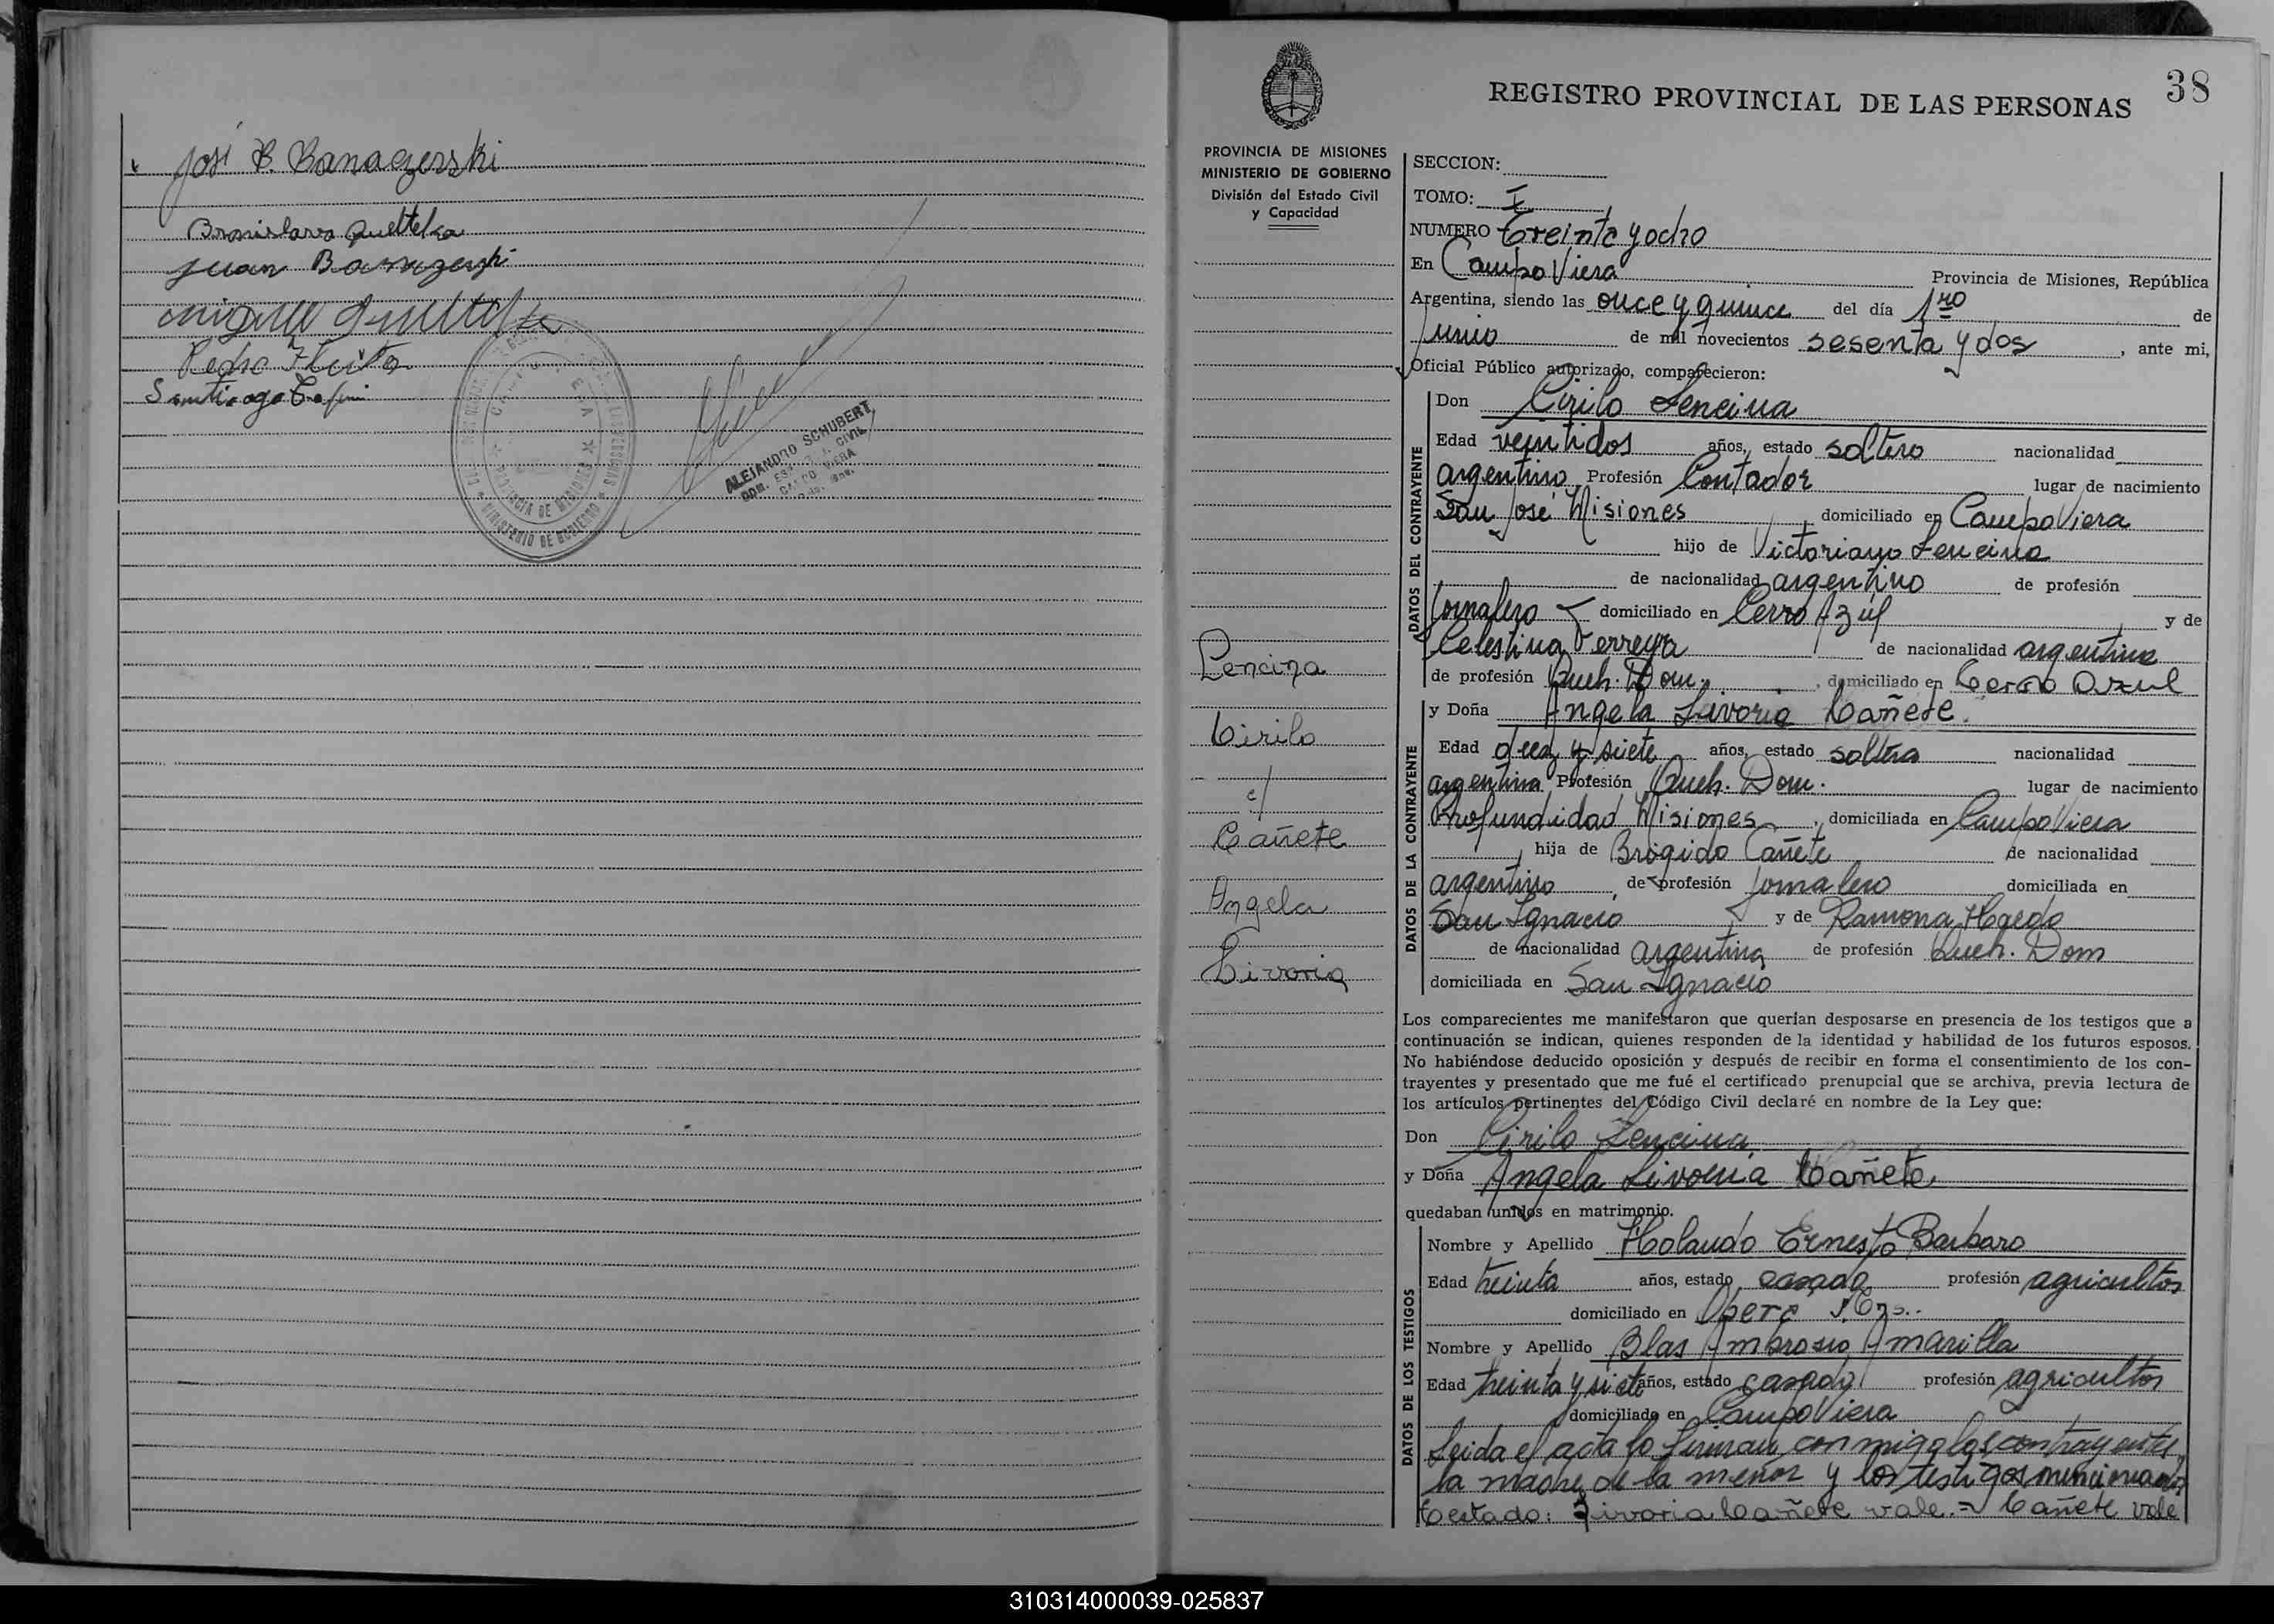 José B. Banaczerski
Bronislava Quettelca
Juan Banaczerski
Miguel
Pedro
Santiago
ALEJANDRO SCHUBERT
CAMPO VIERA
PROVINCIA DE MISIONES
MINISTERIO DE GOBIERNO
38
REGISTRO PROVINCIAL DE LAS PERSONAS
PROVINCIA DE MISIONES
MINISTERIO DE GOBIERNO
División del Estado Civil
y Capacidad
Lencina
Cirilo
c/
Cañete
Angela
Livoria
SECCION:
TOMO: I
NUMERO Treinta y ocho
En Campo Viera Provincia de Misiones, República
Argentina, siendo las once y quince del día 1ro de
Junio de mil novecientos sesenta y dos, ante mi,
Oficial Público autorizado, comparecieron:
DATOS DEL CONTRAYENTE
Don Cirilo Lencina
Edad veintidos años, estado soltero nacionalidad
argentino Profesión Contador lugar de nacimiento
San José Misiones domiciliado en Campo Viera
hijo de Victoriano Lencina
de nacionalidad argentino de profesión
Jornalero domiciliado en Cerro Azúl y de
Celestina Ferreyra de nacionalidad argentina
de profesión Queh. Dom. , domiciliado en Cerro Azul
DATOS DE LA CONTRAYENTE
y Doña Angela Livoria Cañete.
Edad diez y siete años, estado soltera nacionalidad
argentina Profesión Queh. Dom. lugar de nacimiento
Profundidad Misiones, domiciliada en Campo Viera
hija de Brigido Cañete de nacionalidad
argentino de profesión Jornalero domiciliada en
San Ignacio y de Ramona Haedo
de nacionalidad argentina de profesión Queh. Dom
domiciliada en San Ignacio
Los comparecientes me manifestaron que querían desposarse en presencia de los testigos que a
continuación se indican, quienes responden de la identidad y habilidad de los futuros esposos.
No habiéndose deducido oposición y después de recibir en forma el consentimiento de los con-
trayentes y presentado que me fué el certificado prenupcial que se archiva, previa lectura de
los artículos pertinentes del Código Civil declaré en nombre de la Ley que:
Don Cirilo Lencina
y Doña Angela Livoria Cañete
quedaban unidos en matrimonio.
DATOS DE LOS TESTIGOS
Nombre y Apellido Holando Ernesto Barbaro
Edad treinta años, estado casado profesión agricultor
domiciliado en Oberá
Nombre y Apellido Blas Ambrosio Amarilla
Edad treinta y siete años, estado casado profesión agricultor
domiciliado en Campo Viera
Leida el acta lo firman conmigo los contrayentes,
la madre de la menor y los testigos mencionados
Testado: Livoria Cañete vale.= Cañete vale
310314000039-025837